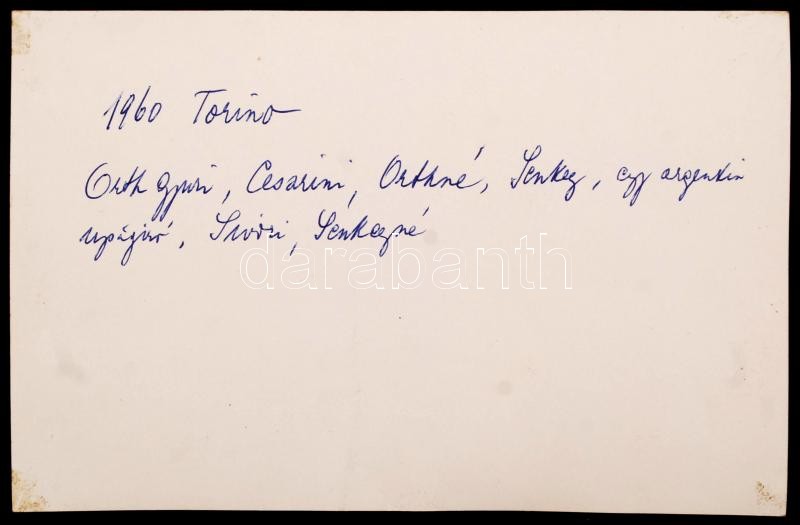 1960 Torino
Orth Gyuri, Cesarini, Orthné, Senkey, egy argentin
ujságiró, Sivóri, Senkeyné
darabanth